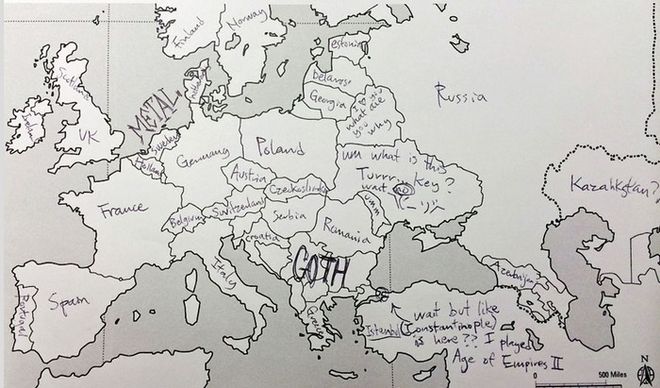 Finland
Norway
Estonia
Scotland
Belarose
Georgia
what are
you
why
Russia
METAL
Ireland
UK
Sweden
Holland
Germany
Poland
um what is this
Turrr... key?
wait no
Kazahkstan?
Austria
Czeckoslovia
France
Belgium
Switzerland
Serbia
Romania
umm
Croatia
GOTH
Italy
Azerbaijan
Portugal
Spain
Greece
wait but like
Istanbul (Constantinople)
is here?? I played
Age of Empires II
0
500 Miles
N